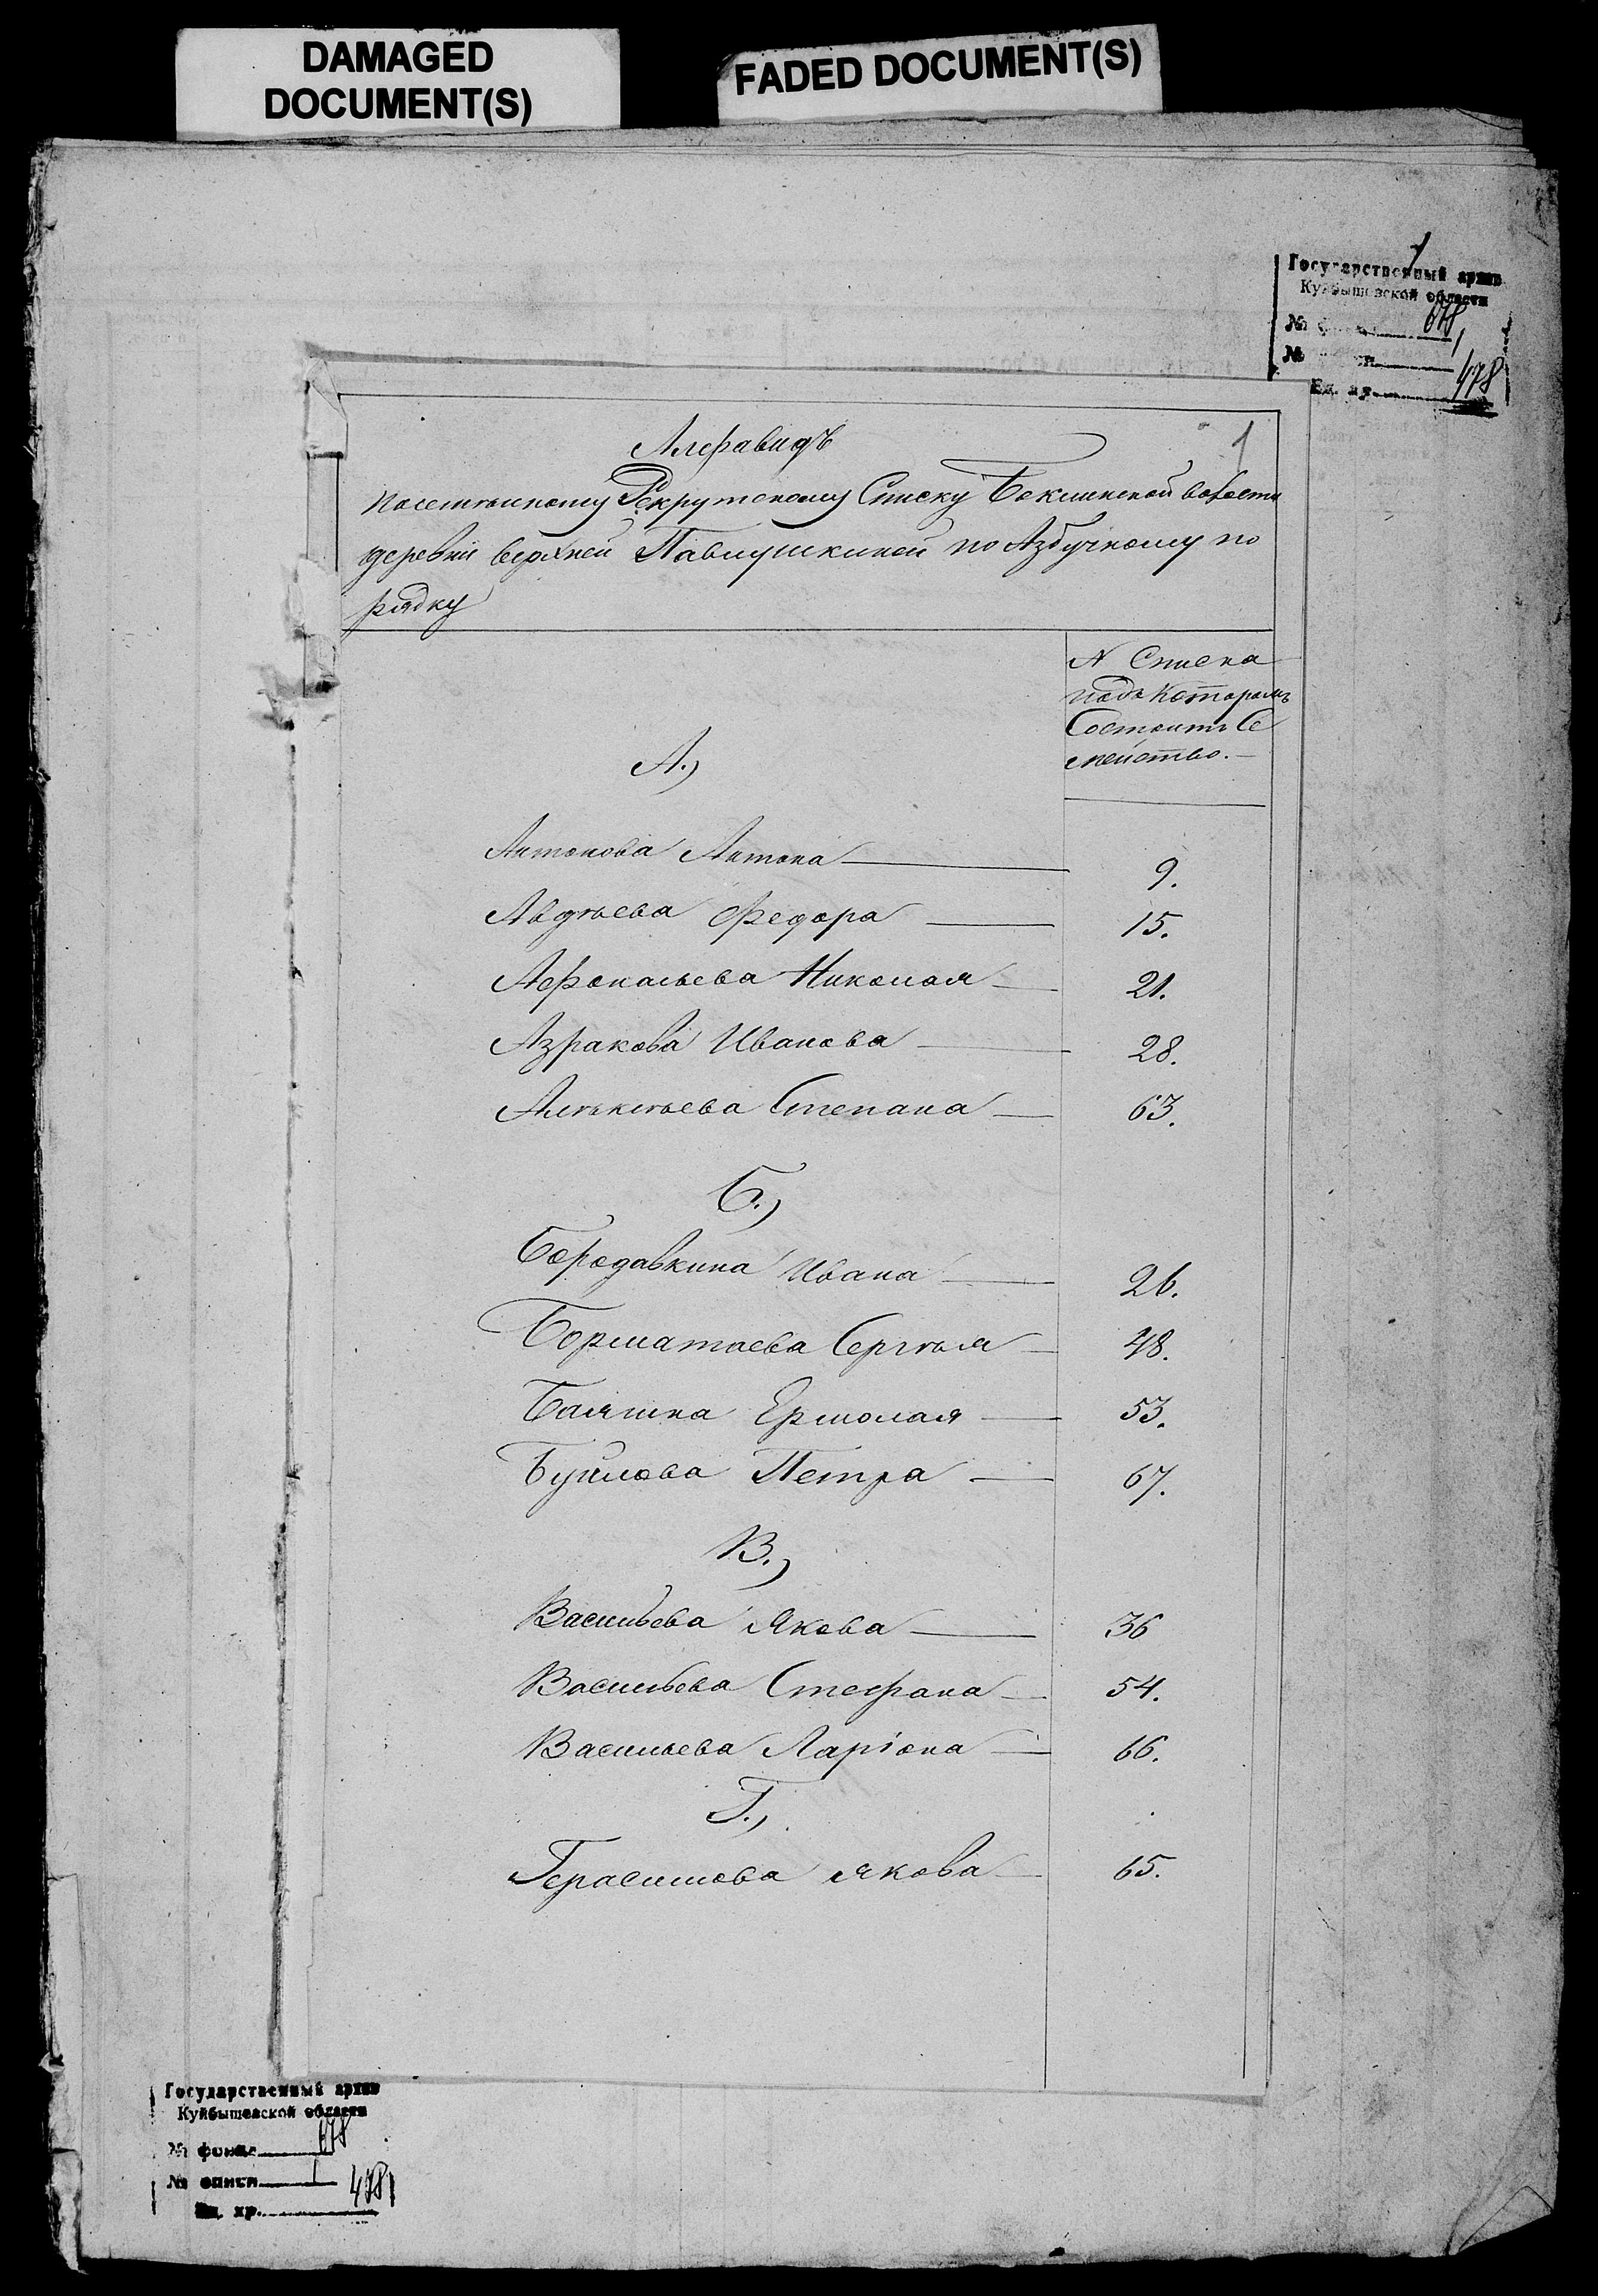 DAMAGED
DOCUMENT(S)
FADED DOCUMENT(S)
1
Государственный архив
Куйбышевской области
№ 678
№ 1
Ед. хр. 478
1
Алфавидъ
посемѣйному Рекрутскому Списку Боклинской волости
деревни верхней Павлушкиной по Азбучному по
рядку
N Списка
подъ Которомъ
Состоитъ Се
мейство.—
А.)
Антонова Антона — 9.
Авдѣева Федора — 15.
Афонасьева Николая — 21.
Азракова Иванова — 28.
Алѣкѣева Степана — 63.
Б.)
Бородавкина Ивана — 26.
Борматаева Сергѣя — 48.
Баляшка Ермолая — 53.
Буйлова Петра — 67.
В.)
Васильева Якова — 36
Васильева Стефана — 54.
Васильева Ларiона — 66.
Г.)
Герасимова Якова — 65.
Государственный архив
Куйбышевской области
№ фонда 678
№ описи 1
Ед. хр. 478